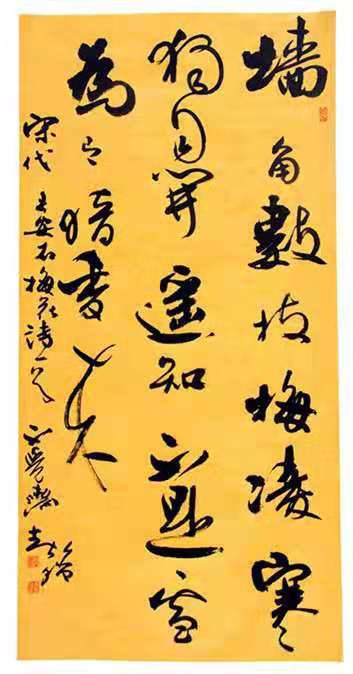 墙角數枝梅凌寒
獨自開遥知不是雪
為有暗香来
宋代王安石梅花诗一首